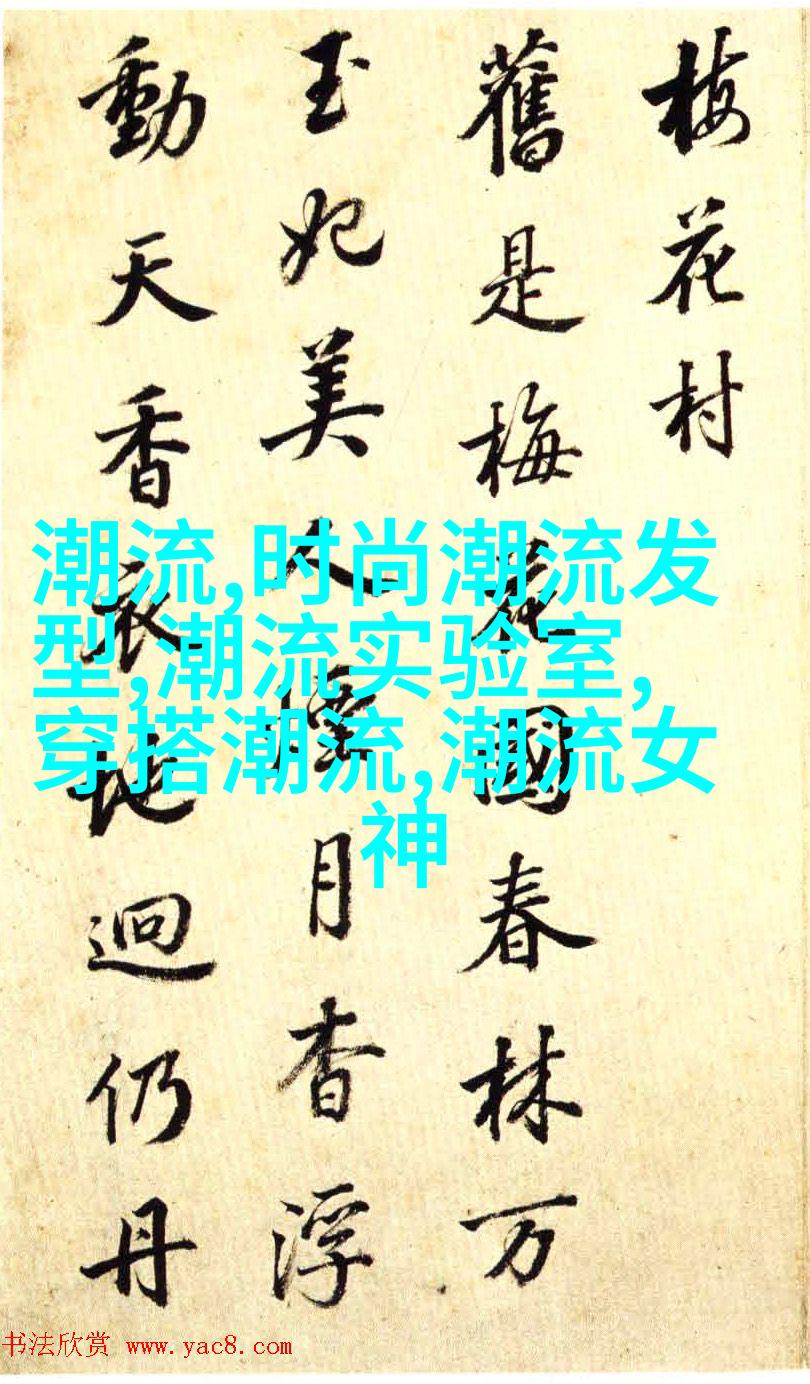 梅花村
舊是梅花國春林万
玉妃美人月杳浮
動天香地迥仍丹
潮流,时尚潮流发
型,潮流实验室,
穿搭潮流,潮流女
神
书法欣赏 www.yac8.com